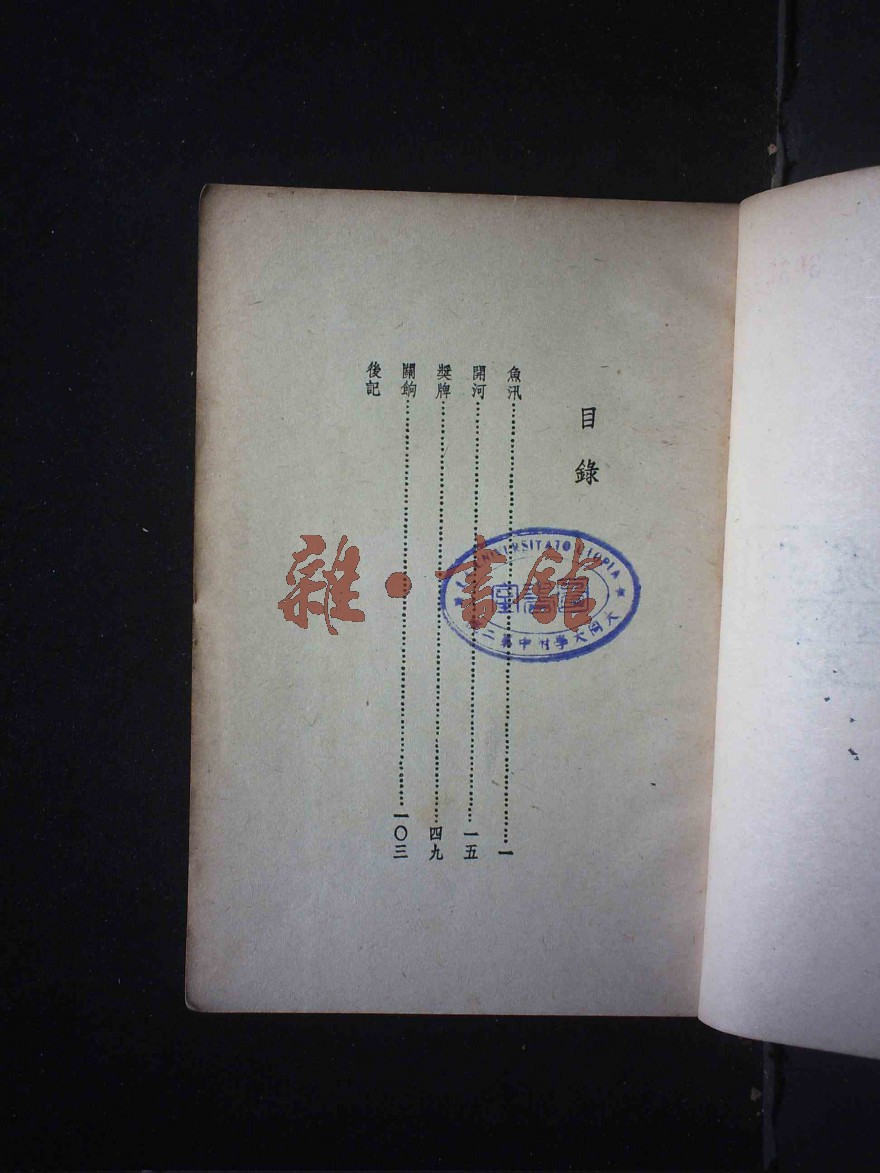 目錄
魚汛……一
開河……一五
獎牌……四九
關餉……一〇三
後記
雜·書館
UNIVERSITATO UTOPIA
圖書室
大同大學附中第二